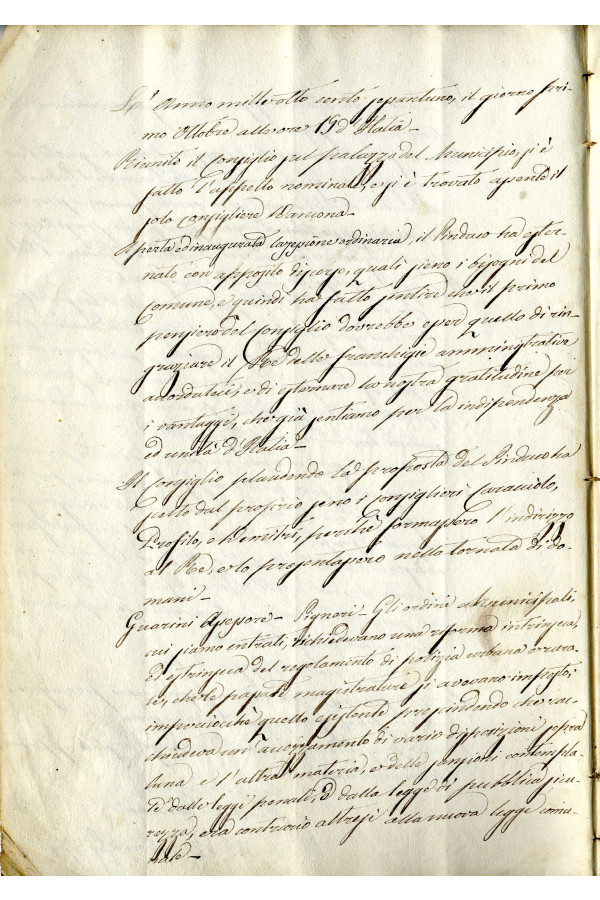 L'Anno mille otto cento sessantuno, il giorno pri-
mo Ottobre alle ore 19 d'Italia -
Riunito il Consiglio sul palazzo del Municipio, si è
fatto l'appello nominale, e si è trovato assente il
solo Consigliere Dancona -
Aperta ed inaugurata la sessione ordinaria, il Sindaco ha ester-
nato con apposito discorso, quali sieno i bisogni del
Comune, e quindi ha fatto sentire che il primo
pensiero del Consiglio dovrebbe esser quello di rin-
graziare il Re delle franchigie amministrative
accordateci, e di esternare la nostra gratitudine pei
i vantaggi, che già sentiamo per la indipendenza
ed unità d'Italia -
Il Consiglio plaudendo la proposta del Sindaco ha
scelto dal proprio seno i Consiglieri Caracciolo,
Profilo, e Demitri, perchè formassero l'indirizzo
al Re, e lo presentassero nella tornata di do-
mani -
Guarini Assessore - Signori - Gli ordini Municipali,
cui siamo entrati, richiedevano una riforma intrinseca,
ed estrinseca del regolamento di polizia urbana e rura-
le, che le passate magistrature si avevano
imperciocchè quello esistente che rac-
chiudeva un di varie disposizioni sopra
l'una e l'altra materia, e delle sanzioni contempla-
te dalle leggi penali, e dalla legge di pubblica sicu-
rezza, era contrario altresì alla nuova legge comu-
nale -